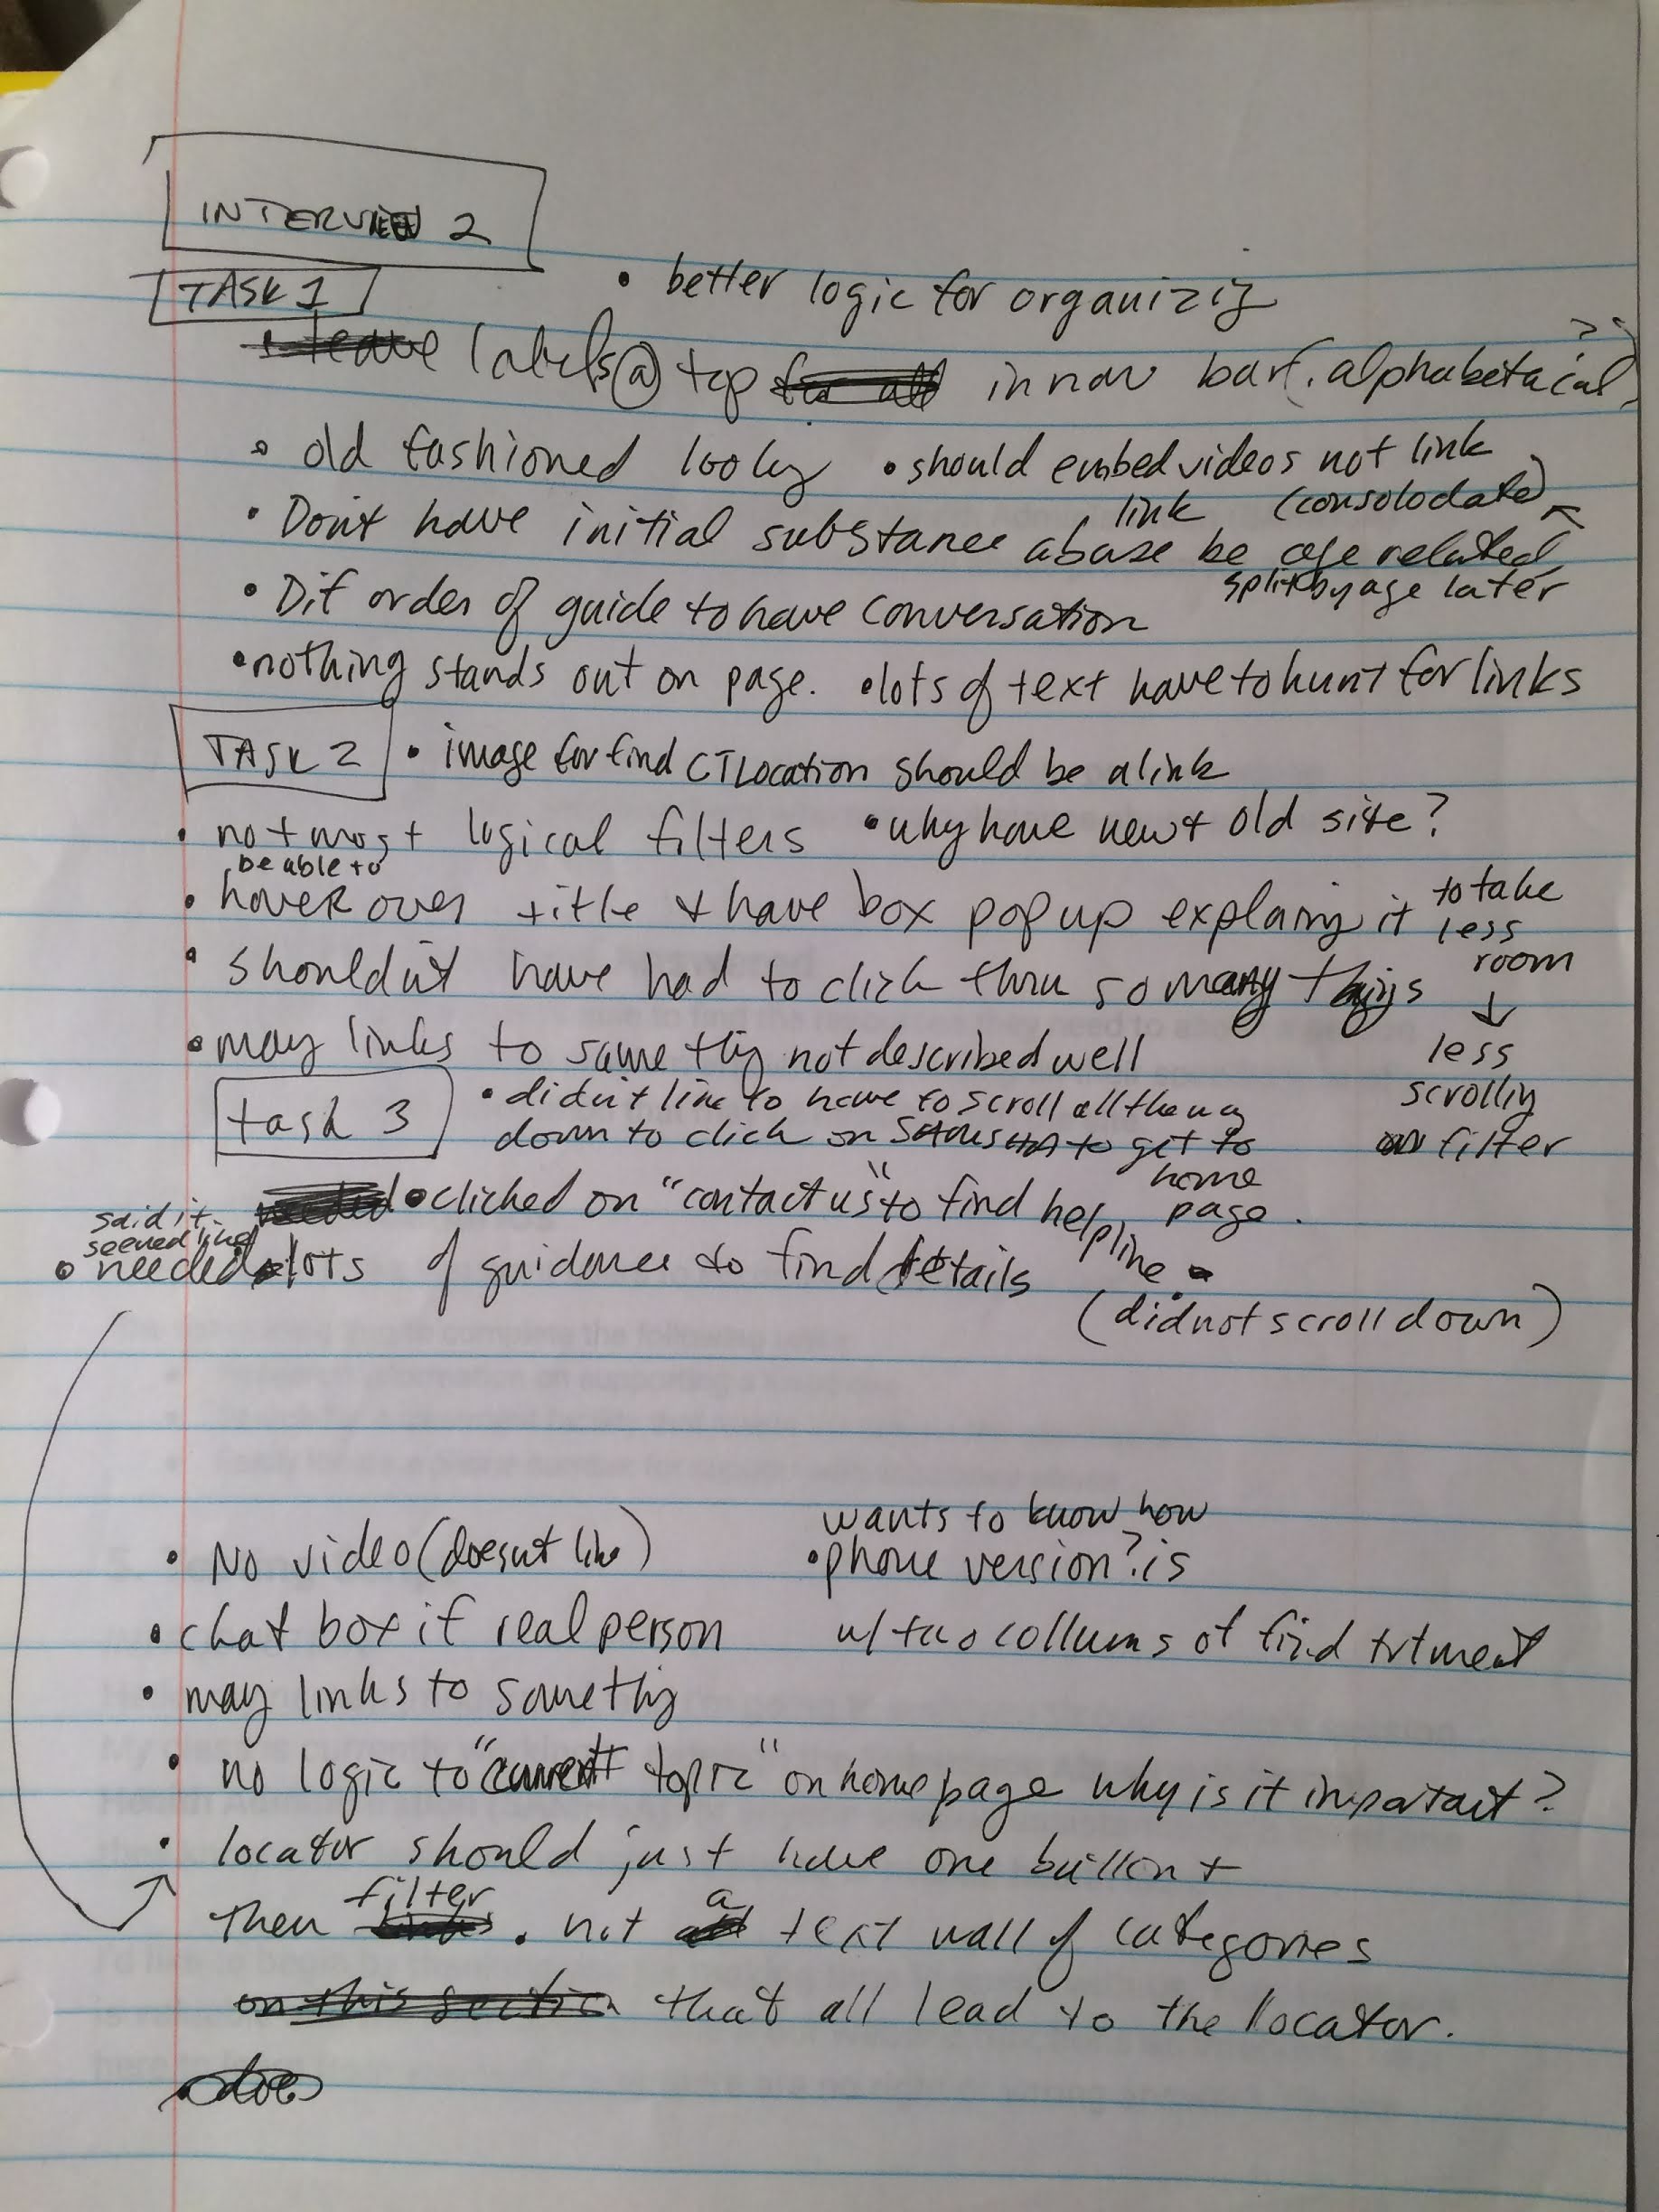 INTERVIEW 2
TASK 1
• better logic for organizig
labels @ top in nav bar (. alphabetacial ??)
• old fashioned lookg • should embed videos not link
• Don't have initial substance abuse link be age related (consolodate)
split by age later
• Dif order of guide to have conversation
• nothing stands out on page. • lots of text have to hunt for links
TASK 2 • image for find CT Location should be a link
• not most logical filters • why have new + old site?
• be able to hover over title + have box pop up explaing it to take less room
↓
less scrollig filter
• shouldn't have had to click thru so many things
• may links to same thg not described well
task 3 • didn't like to have to scroll all the way
down to click on SAMSHA to get to home page.
• clicked on "contact us" to find helpline.
(did not scroll down)
• said it seemed like needed lots of guidance to find details
• No video (doesn't like)
• wants to know how phone version? is
w/ two collums of find trtment
• chat box if real person
• may links to somethg
• no logic to "current topic" on home page why is it important?
• locator should just have one button +
then filter. not a text wall of categories
that all lead to the locator.